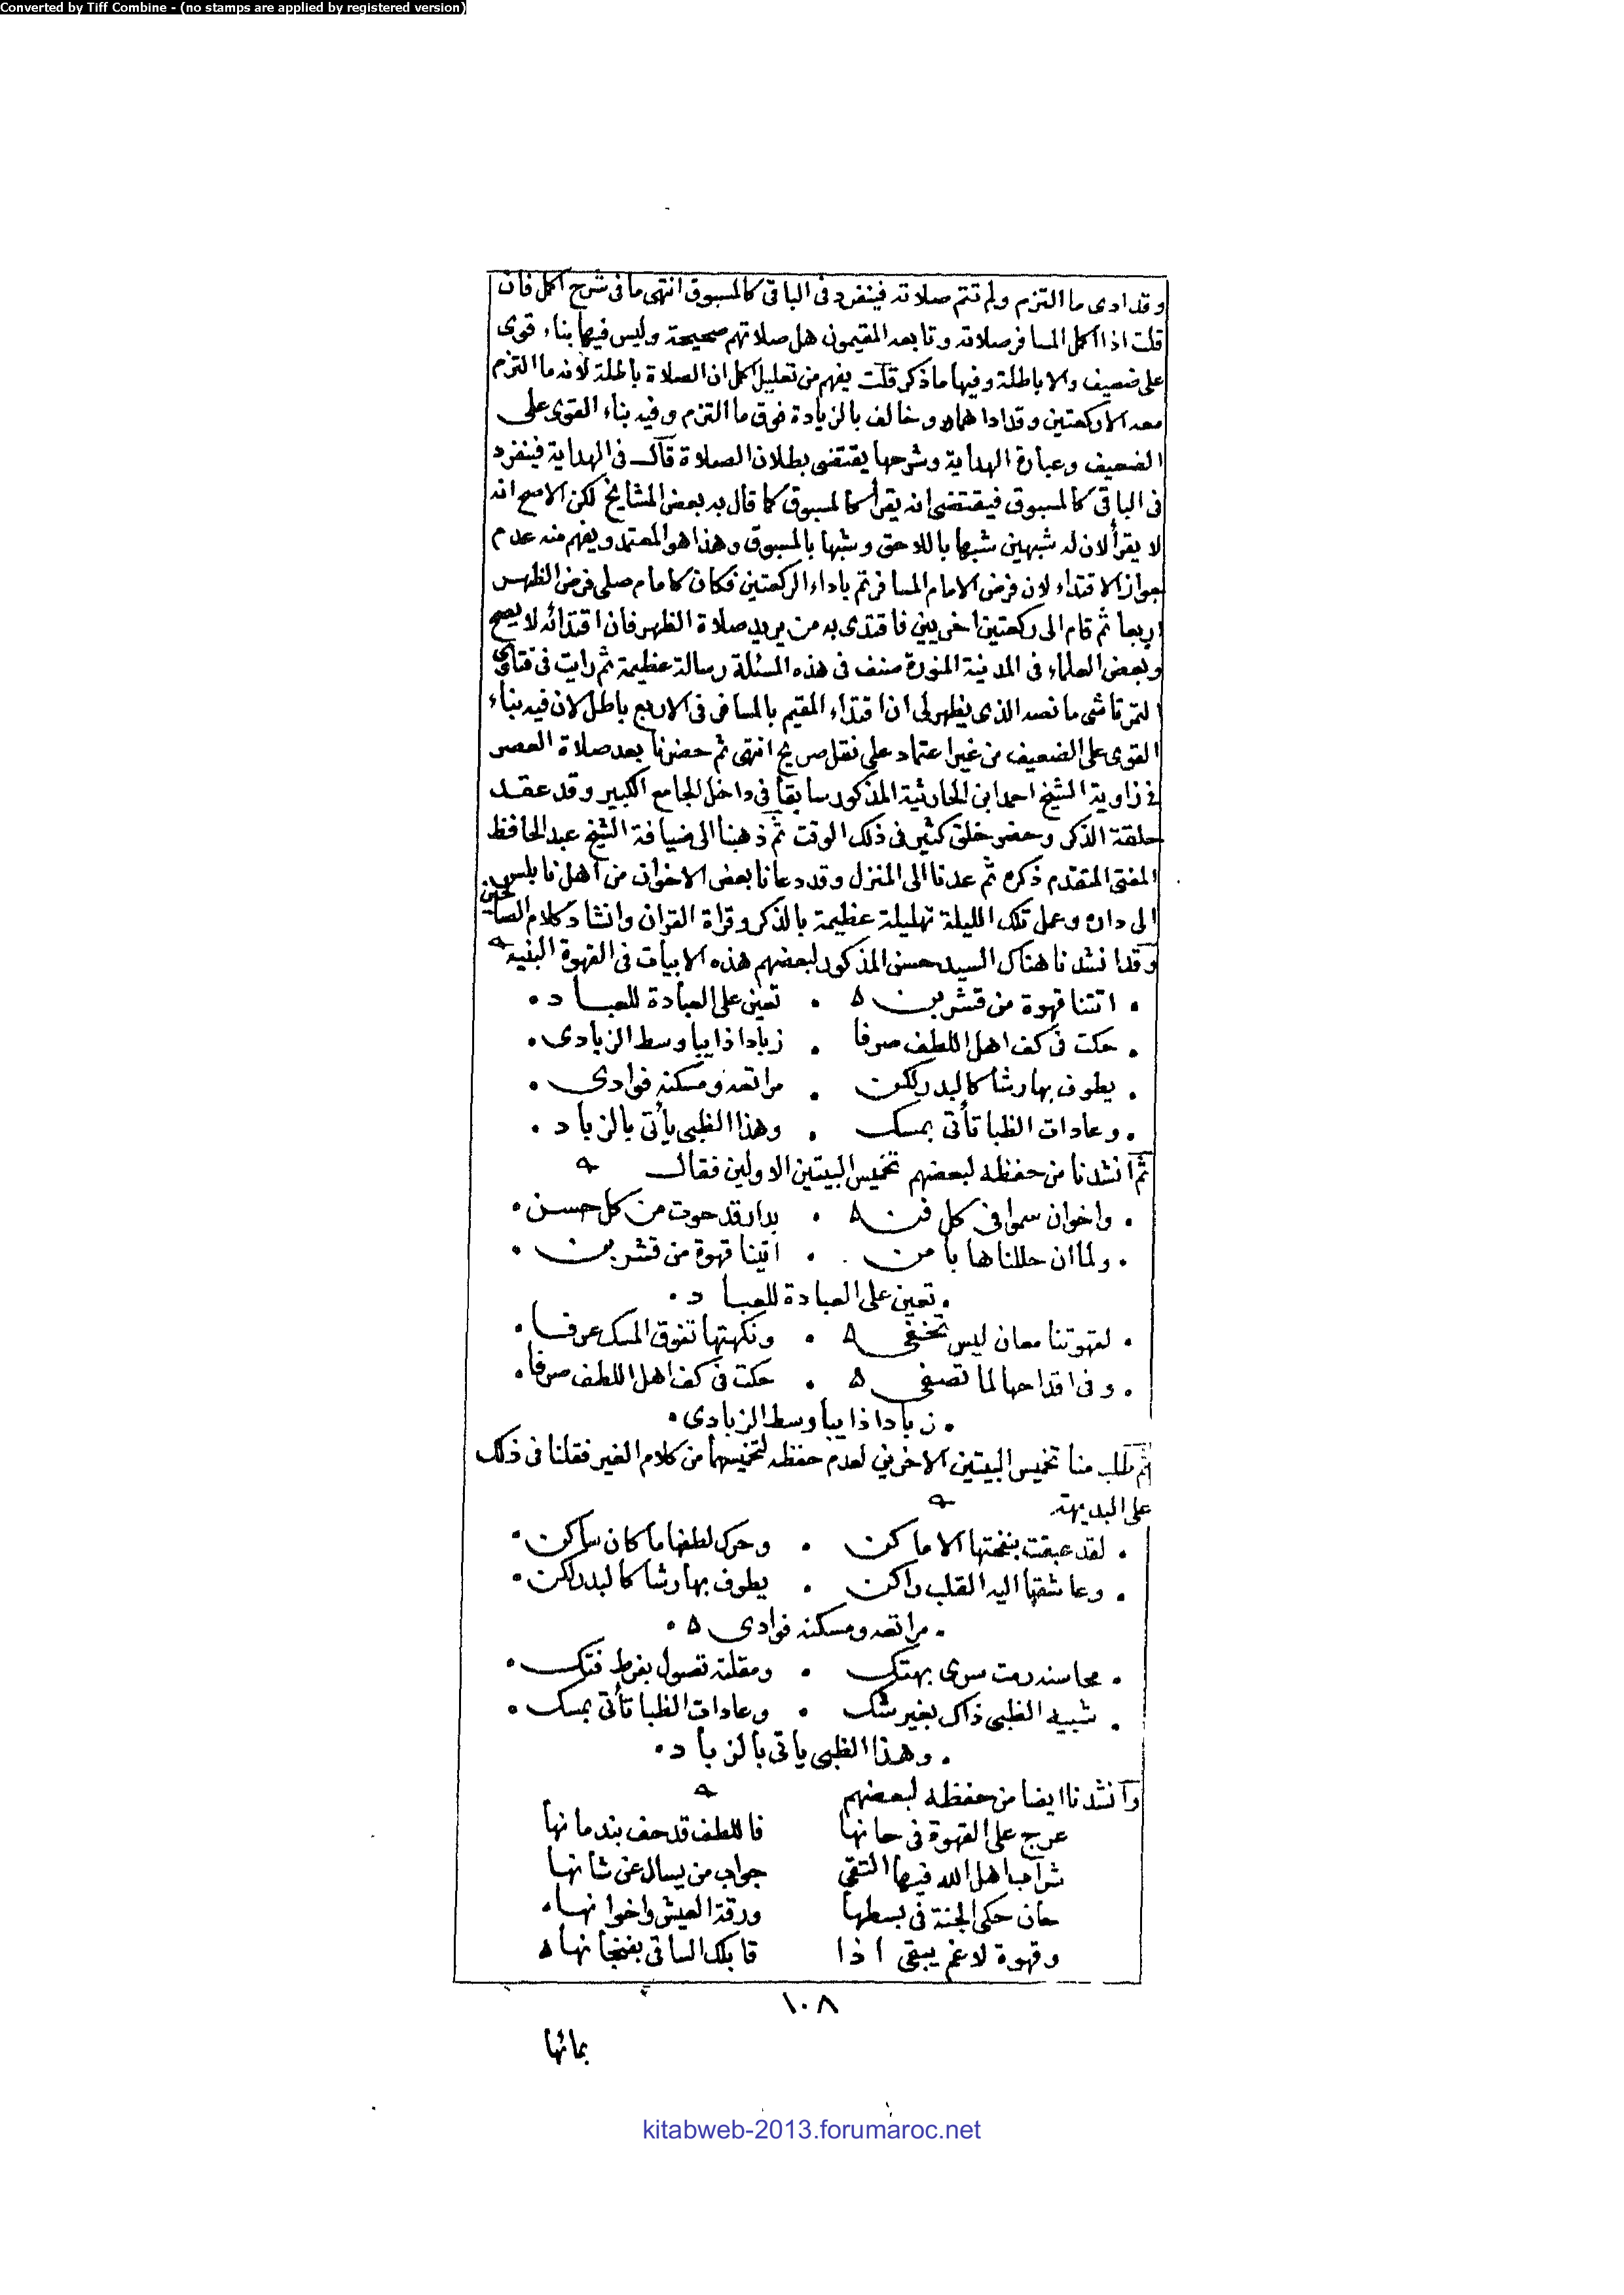 Converted by Tiff Combine - (no stamps are applied by registered version)
وقد ادى ما التزم ولم تتم صلاته فينفرد فى الباقى كالمسبوق انتهى ما فى شرح اكمل فان
قلت اذا اكمل المسافر صلاته وتابعه المقيمون هل صلاتهم صحيحة وليس فيها بناء قوى
على ضعيف والا باطلة وفيها ما ذكر قلت يفهم من تعليل اكمل ان الصلاة باطلة لانه ما التزم
معه الا ركعتين وقد اداهما وخالف بالزيادة فوق ما التزم وفيه بناء القوى على
الضعيف وعبارة الهداية وشرحها يقتضى بطلان الصلاة قال فى الهداية فينفرد
فى الباقى كالمسبوق فيقتضى انه يقرأ كالمسبوق كما قال به بعض المشايخ لكن الاصح انه
لا يقرأ لان له شبهين شبها باللاحق وشبها بالمسبوق وهذا هو المعتمد ويفهم منه عدم
جواز الاقتداء لان فرض الامام المسافر تم باداء الركعتين فكان كامام صلى فرض الظهر
اربعا ثم قام الى ركعتين اخريين فاقتدى به من يريد صلاة الظهر فان اقتدائه لا يصح
وبعض العلماء فى المدينة المنورة صنف فى هذه المسئلة رسالة عظيمة ثم رايت فى فتاوى
التمرتاشى ما نصه الذى يظهر لى ان اقتداء المقيم بالمسافر فى الاربع باطل لان فيه بناء
القوى على الضعيف من غير اعتماد على نقل صريح انتهى ثم حضرنا بعد صلاة العصر
فى زاوية الشيخ احمد ابن الحارثية المذكور سابقا فى داخل الجامع الكبير وقد عقد
حلقة الذكر وحضر خلق كثير فى ذلك الوقت ثم ذهبنا الى ضيافة الشيخ عبد الحافظ
المفتى المتقدم ذكره ثم عدنا الى المنزل وقد دعانا بعض الاخوان من اهل نابلس
الى داره وعمل تلك الليلة تهليلة عظيمة بالذكر وقراة القران وانشاد كلام الصالحين
وقد انشدنا هناك السيد حسن المذكور لبعضهم هذه الابيات فى القهوة البنيه
اتتنا قهوة من قشر بن • تعين على العبادة للعباد
حكت فى كف اهل اللطف صرفا • زبادا ذايبا وسط الزبادى
يطوف بها رشا كالبدر لكن • مراتعه ومسكنه فوادى
وعادات الظبا تأتى بمسك • وهذا الظبى يأتى بالزباد
ثم انشدنا من حفظه لبعضهم تخميس البيتين الاولين فقال
واخوان سموا فى كل فن • بدار قد حوت من كل حسن
ولما ان حللناها بامن • اتينا قهوة من قشر بن
تعين على العبادة للعباد
لقهوتنا معان ليس تخفى • ونكهتها تفوق المسك عرفا
وفى اقداحها لما تصفى • حكت فى كف اهل اللطف صرفا
زبادا ذايبا وسط الزبادى
ثم طلب منا تخميس البيتين الاخرين لعدم حفظه لتخميسهما من كلام الغير فقلنا فى ذلك
على البديهة
لقد عبقت بنفحتها الاماكن • وحرك لطفها ما كان ساكن
وعاشقها اليه القلب راكن • يطوف بها رشا كالبدر لكن
مراتعه ومسكنه فوادى
محاسنه رمت سرى بهتك • ومقلته تصول بفرط فتك
شبيه الظبى ذاك بغير شك • وعادات الظبا تأتى بمسك
وهذا الظبى ياتى بالزباد
وانشدنا ايضا من حفظه لبعضهم
عرج على القهوة فى حانها فاللطف قد حف بندمانها
شراب اهل الله فيها التقى جواب من يسال عن شانها
حان حكى الجنة فى بسطها ورقة العيش واخوانها
وقهوة لا غم يبقى اذا قابلك الساقى بفنجانها
١٠٨
بمائها
kitabweb-2013.forumaroc.net